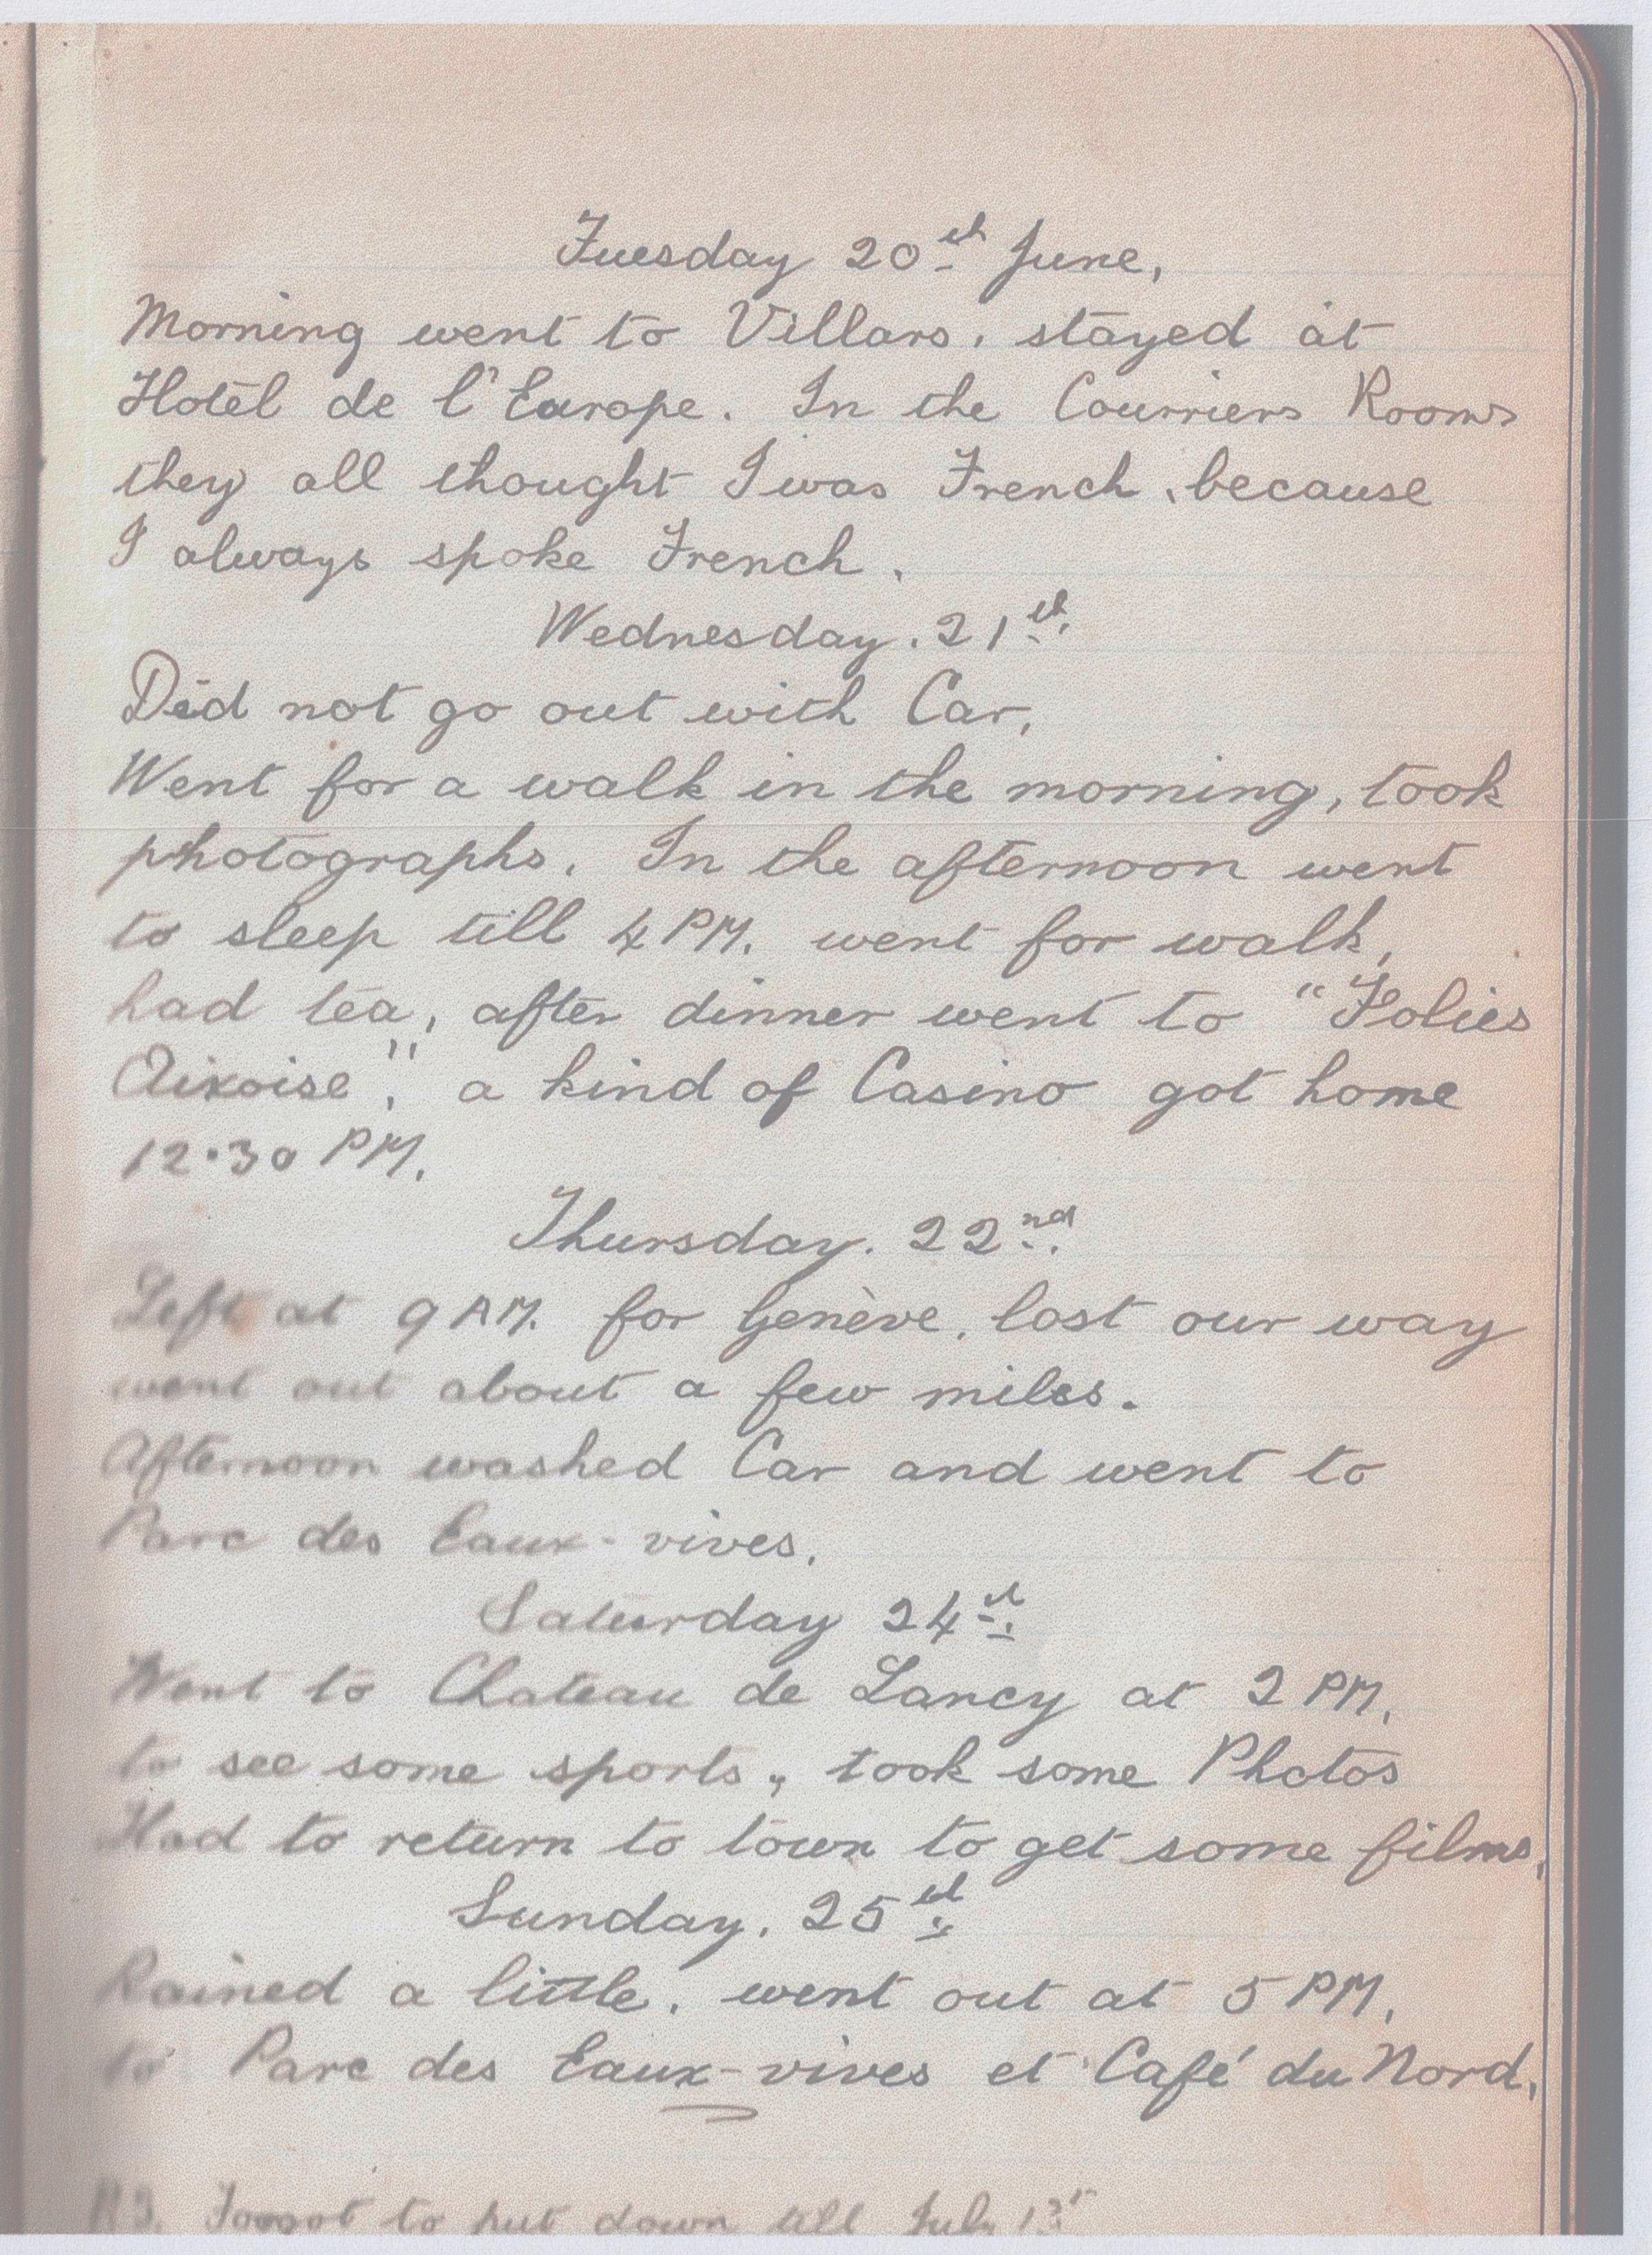 Tuesday 20th June,
Morning went to Villars, stayed at
Hotel de l'Europe. In the Courriers Rooms
they all thought I was French, because
I always spoke French.
Wednesday. 21th.
Did not go out with Car,
Went for a walk in the morning, took
photographs. In the afternoon went
to sleep till 4 PM. went for walk,
had tea, after dinner went to "Folies
Aixoise", a kind of Casino got home
12.30 PM.
Thursday. 22nd.
Left at 9 AM. for Genève, lost our way
went out about a few miles.
Afternoon washed Car and went to
Parc des Eaux-vives.
Saturday 24th.
Went to Chateau de Lancy at 2 PM,
to see some sports, took some Photos
Had to return to town to get some films,
Sunday. 25th.
Rained a little, went out at 5 PM,
to Parc des Eaux-vives et Café du Nord.
Forgot to put down till July 13th